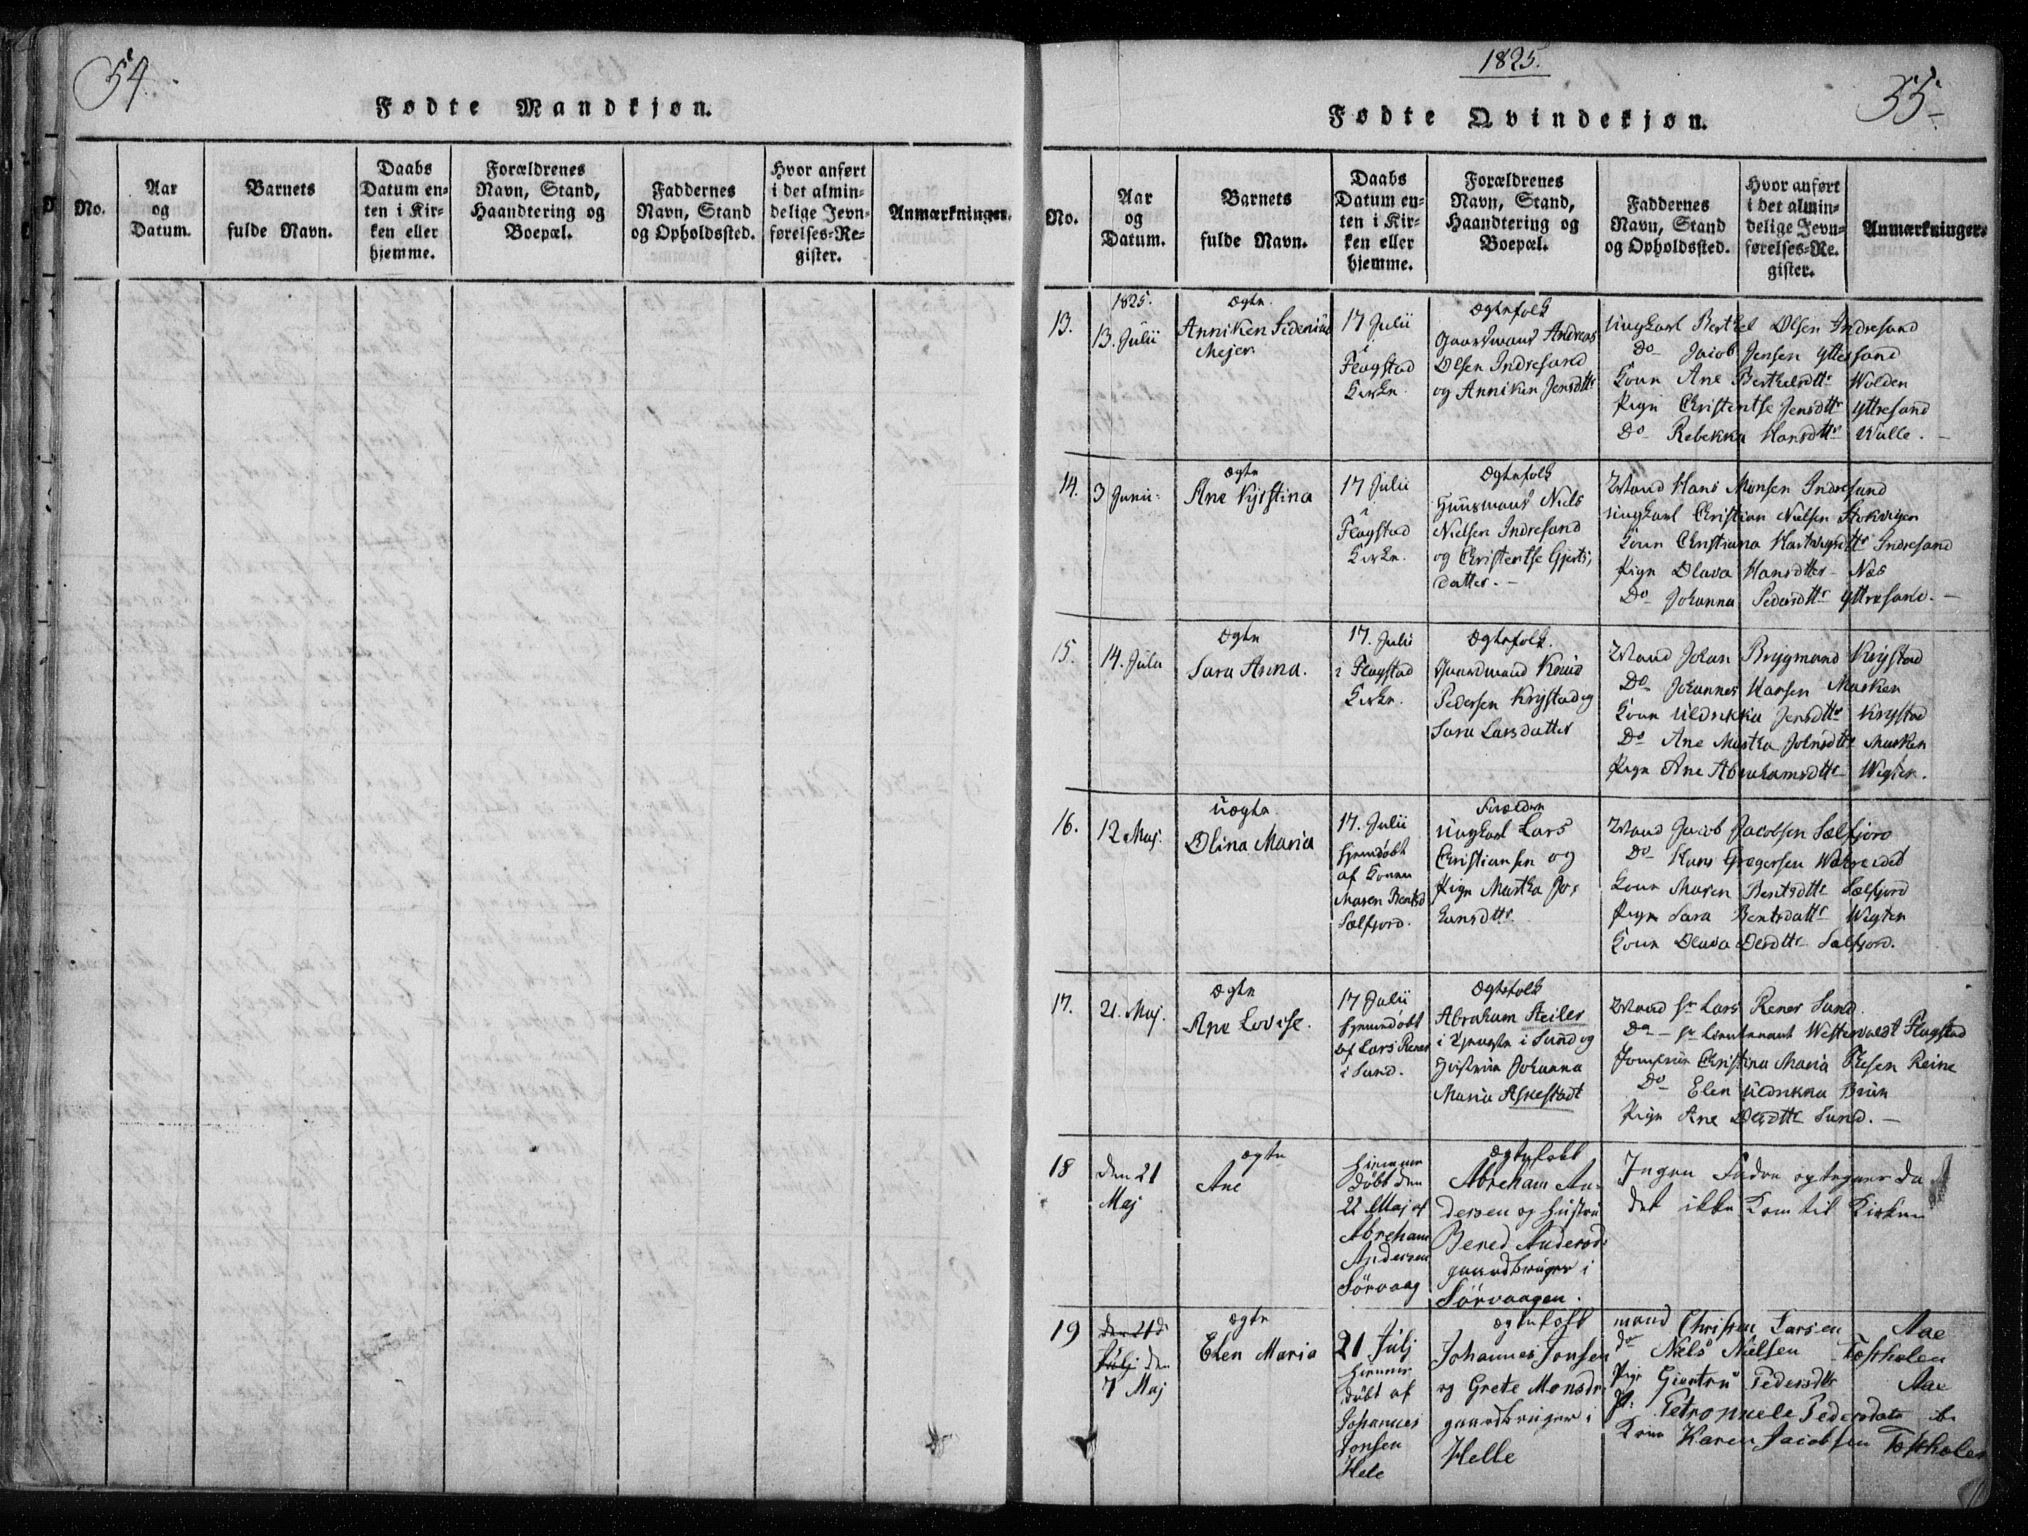 54.
Fødte Mandkjøn.
No.
Aar
og
Datum.
Barnets
fulde Navn.
Daabs
Datum en-
ten i Kir-
ken eller
hjemme.
Forældrenes
Navn, Stand,
Haandtering og
Boepæl.
Faddernes
Navn, Stand
og Opholdssted.
Hvor anført
i det almin-
delige Jevn-
førelses-Re-
gister.
Anmærkninger.
1825.
55.
Fødte Qvindekjøn.
No.
Aar
og
Datum.
Barnets
fulde Navn.
Daabs
Datum en-
ten i Kir-
ken eller
hjemme.
Forældrenes
Navn, Stand,
Haandtering og
Boepæl.
Faddernes
Navn, Stand
og Opholdssted.
Hvor anført
i det almin-
delige Jevn-
førelses-Re-
gister.
Anmærkninger.
13.
1825.
13. Julii
Ægte.
Anniken
Mejer
17 Julii
i
Flagstad
Kirke.
Ægtefolk
Gaardmand Andreas
Olsen Indresand
og Anniken Jensdttr
Ungkarl Berthel Olsen Indresand
Do Jacob Jensen Yttersand
Kone Ane Berthelsdttr Wolden
Pige Christentse Jensdttr Yttresand
Do Rebekka Hansdttr Wulle. -
14.
3 Junii
Ægte
Ane Kjrstina
17 Julii
i
Flagstad
Kirke.
Ægtefolk
Huusmand Niels
Nielsen Indresand
og Christentse Gjerts,
datter. -
Mand Hans Monsen Indresand
Ungkarl Christian Nielsen
Kone Christiana Hartvigsdttr Indresand
Pige Olava Hansdtter Næs
Do Johanna Pedersdttr Yttresand. -
15.
14. Julii
Ægte
Sara Anna.
17. Julii
i Flagstad
Kirke.
Ægtefolk.
Gaardmand Knud
Pedersen Krystad og
Sara Larsdatter
Mand Johan Brygmand Krystad
Do Johannes Hansen Musken
Kone Uldrikka Jensdttr Krystad
Do Ane Martha Johnsdttr Musken
Pige Ane Abrahamsdttr Wigten.
16.
12 Maj.
Uægte
Olina Maria
17. Julii
hjemdøbt
af Konen
Maren Bentsd
Sælfjord.
Forældre
Ungkarl Lars
Christiansen og
Pige Martha Jo,
hansdttr.
Mand Jacob Jacobsen Sælfjord
Do Hans Gregersen
Kone Maren Bentsdttr Sælfjord
Pige Sara Bentsdattr Wigten
Kone Olava Olsdttr Sælfjord.
17.
21. Maj.
Ægte
Ane Lovise.
17 Julii
hjemdøbt
af Lars Rener
i Sund.
Ægtefolk
Abraham Steiler
i Tjeneste i Sund og
Hustrue Johanna
Maria Asnestadt
Mand Hr Lars Rener Sund.
Do - Hr Lieutenant Westervaldt Flagstad
Jomfrue Christina Maria Thesen Reine
Do Elen Uldrikka Bruun
Pige Ane Olsdttr Sund. -
18
den 21
Maj
ægte
Ane
hiemme
døbt den
22 Maj af
Abreham
Andersen
Sörvaag
ægtefolk
Abreham An-
dersen og hustru
Bered Andersd:
gaardbruger i
Sörvaagen.
Ingen Fadre optegnes da
det ikke kom til Kirken
19
den 21de
Julj den
7 Maj
ægte
Elen Maria
21 Julj
hiemme
döbt af
Johannes
Jonsen
Hele
ægtefolk
Johannes Jonsen
og Grete Monsdr
gaardbruger i
Helle
mand Christen Larsen Aae
do Niels Nielsen
Pige Giertru Pedersdttr Aae
P: Petronnele Pedersdatr ib.
Kone Karen Jacobsen